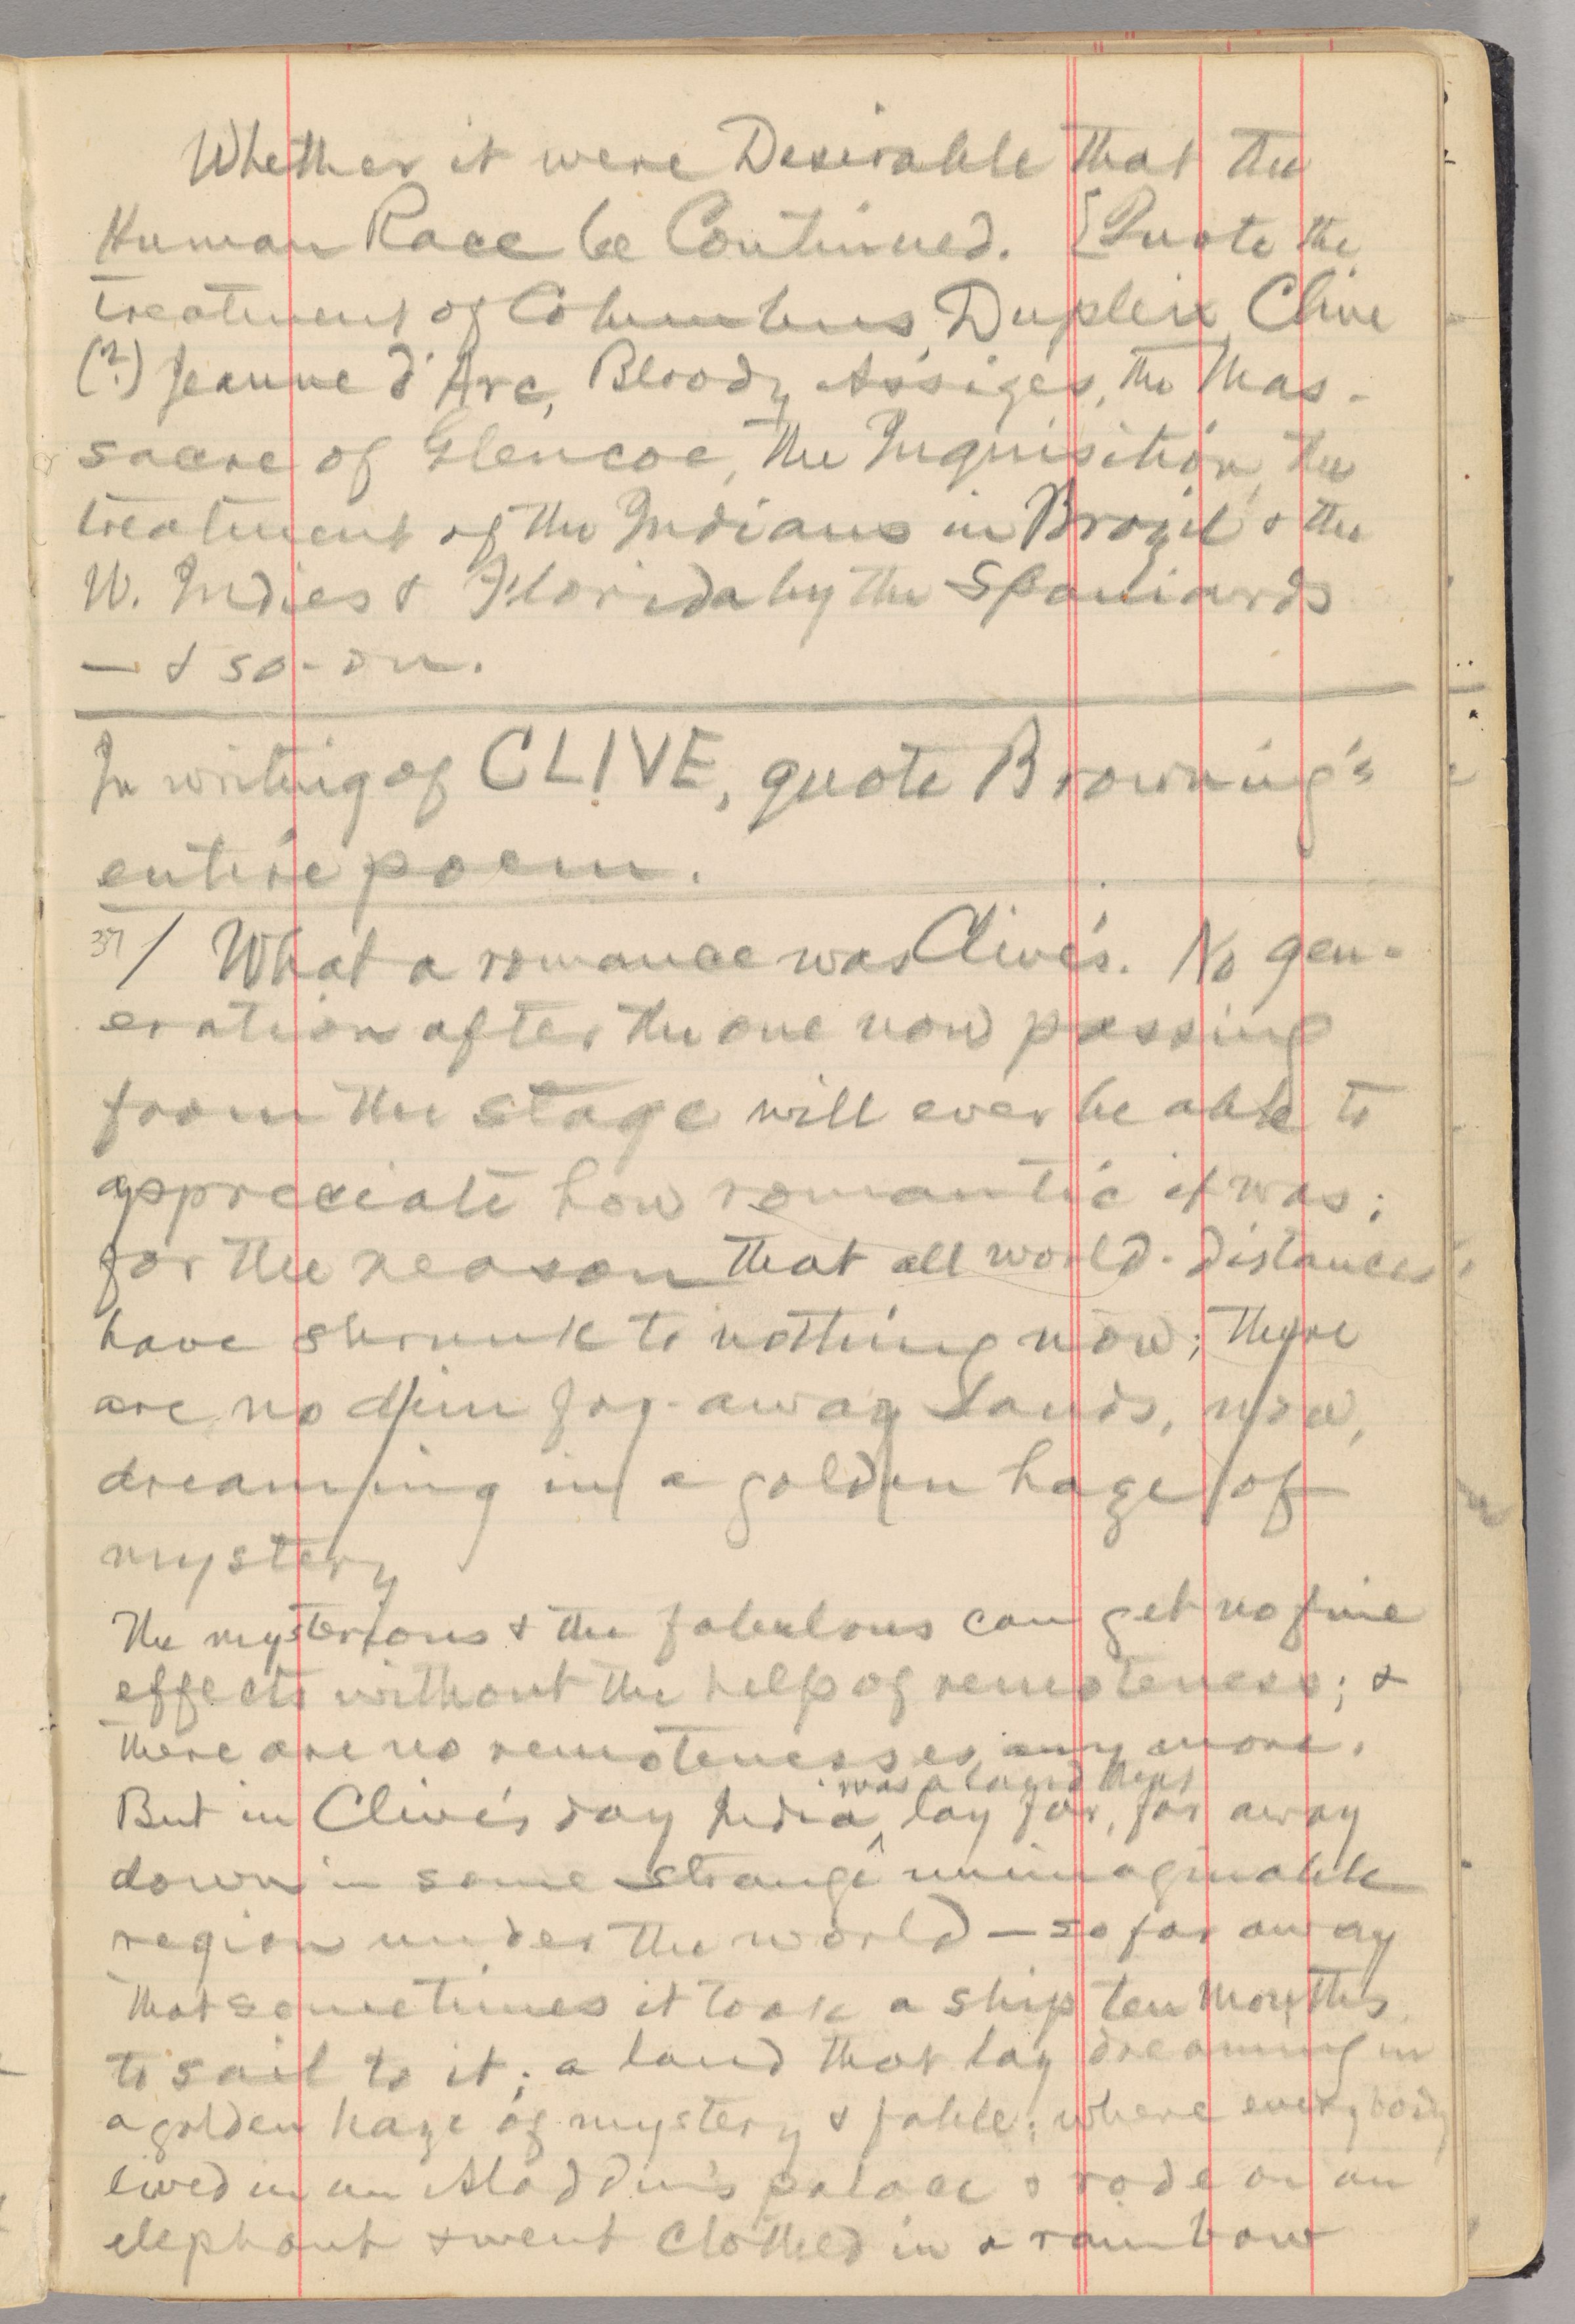 Whether it were Desirable that the
Human Race be Continued. [Quote the
treatment of Columbus, Dupleix, Clive
(?) Jeanne d'Arc, Bloody Assizes, the Mas-
sacre of Glencoe, the Inquisition, the
treatment of the Indians in Brazil & the
W. Indies & Florida by the Spaniards
— & so-on.
In writing of CLIVE, quote Browning's
entire poem.
37/ What a romance was Clive's. No gen-
eration after the one now passing
from the stage will ever be able to
appreciate how romantic it was;
for the reason that all world-distances
have shrunk to nothing now; there
are no dim far-away lands, now,
dreaming in a golden haze of
mystery
The mysterious & the fabulous can get no fine
effects without the help of remoteness; &
there are no remotenesses any more.
was a land that
But in Clive's day India lay far, far away
down in some strange unimaginable
region under the world — so far away
that sometimes it took a ship ten months
to sail to it; a land that lay dreaming in
a golden haze of mystery & fable; where everybody
lived in an Aladdin's palace & rode on an
elephant & went clothed in a rainbow